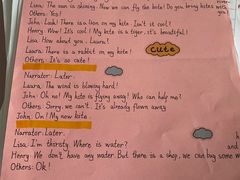 Lisa: The sun is shining. Now we can fly the kite! Do you bring kites
Others: Yes!
John: Look! There is a lion on my kite. Isn't it cool?
Henry: Wow! It's cool! My kite is a tiger, it's beautiful!
Lisa: How about you, Laura!
Laura: There is a rabbit on my kite!
cute
Others: It's so cute!
Narrator: Later.
Laura: The wind is blowing hard!
John: Oh no! My kite is flying away! Who can help me?
Others: Sorry, we can't. It's already flown away
John: Oh! My new kite
Narrator: Later.
Lisa: I'm thirsty. Where is water?
Henry: We don't have any water. But there is a shop, we can buy some
Others: Ok!